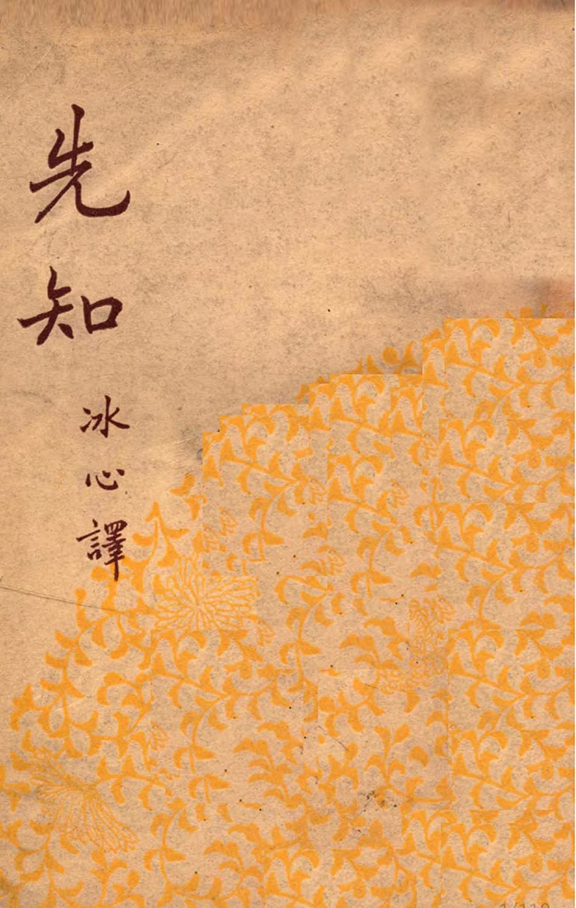 先知
冰心譯